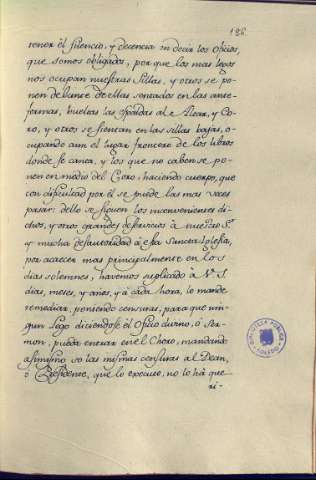 186.
tener el silencio, y decencia en decir los oficios,
que somos obligados, por que los mas legos
nos ocupan nuestras sillas, y otros se po-
nen delante de ellas sentados en las ante-
formas, bueltas las espaldas al Altar, y Co-
ro, y otros se sientan en las sillas bajas, o-
cupando aun el lugar frontero de los libros
donde se canta, y los que no caben se po-
nen en medio del Coro, haciendo cuerpo, que
con dificultad por él se puede las mas veces
pasar: dello se siguen los inconvenientes di-
chos, y otros grandes deservicios à nuestro Sr.
y mucha desautoridad à esta Sancta Iglesia,
por acaecer mas principalmente en los
dias solemnes, havemos suplicado à V. S.
dias, meses, y años, y à cada hora, lo mande
remediar, poniendo censuras, para que nin-
gun Lego diciendose el Oficio divino, ò Ser-
mon, pueda entrar en el Choro, mandando
asimismo so las mismas censuras al Dean,
ò Presidente, que lo execute, no lo hà que-
ri-
BIBLIOTECA PUBLICA
TOLEDO